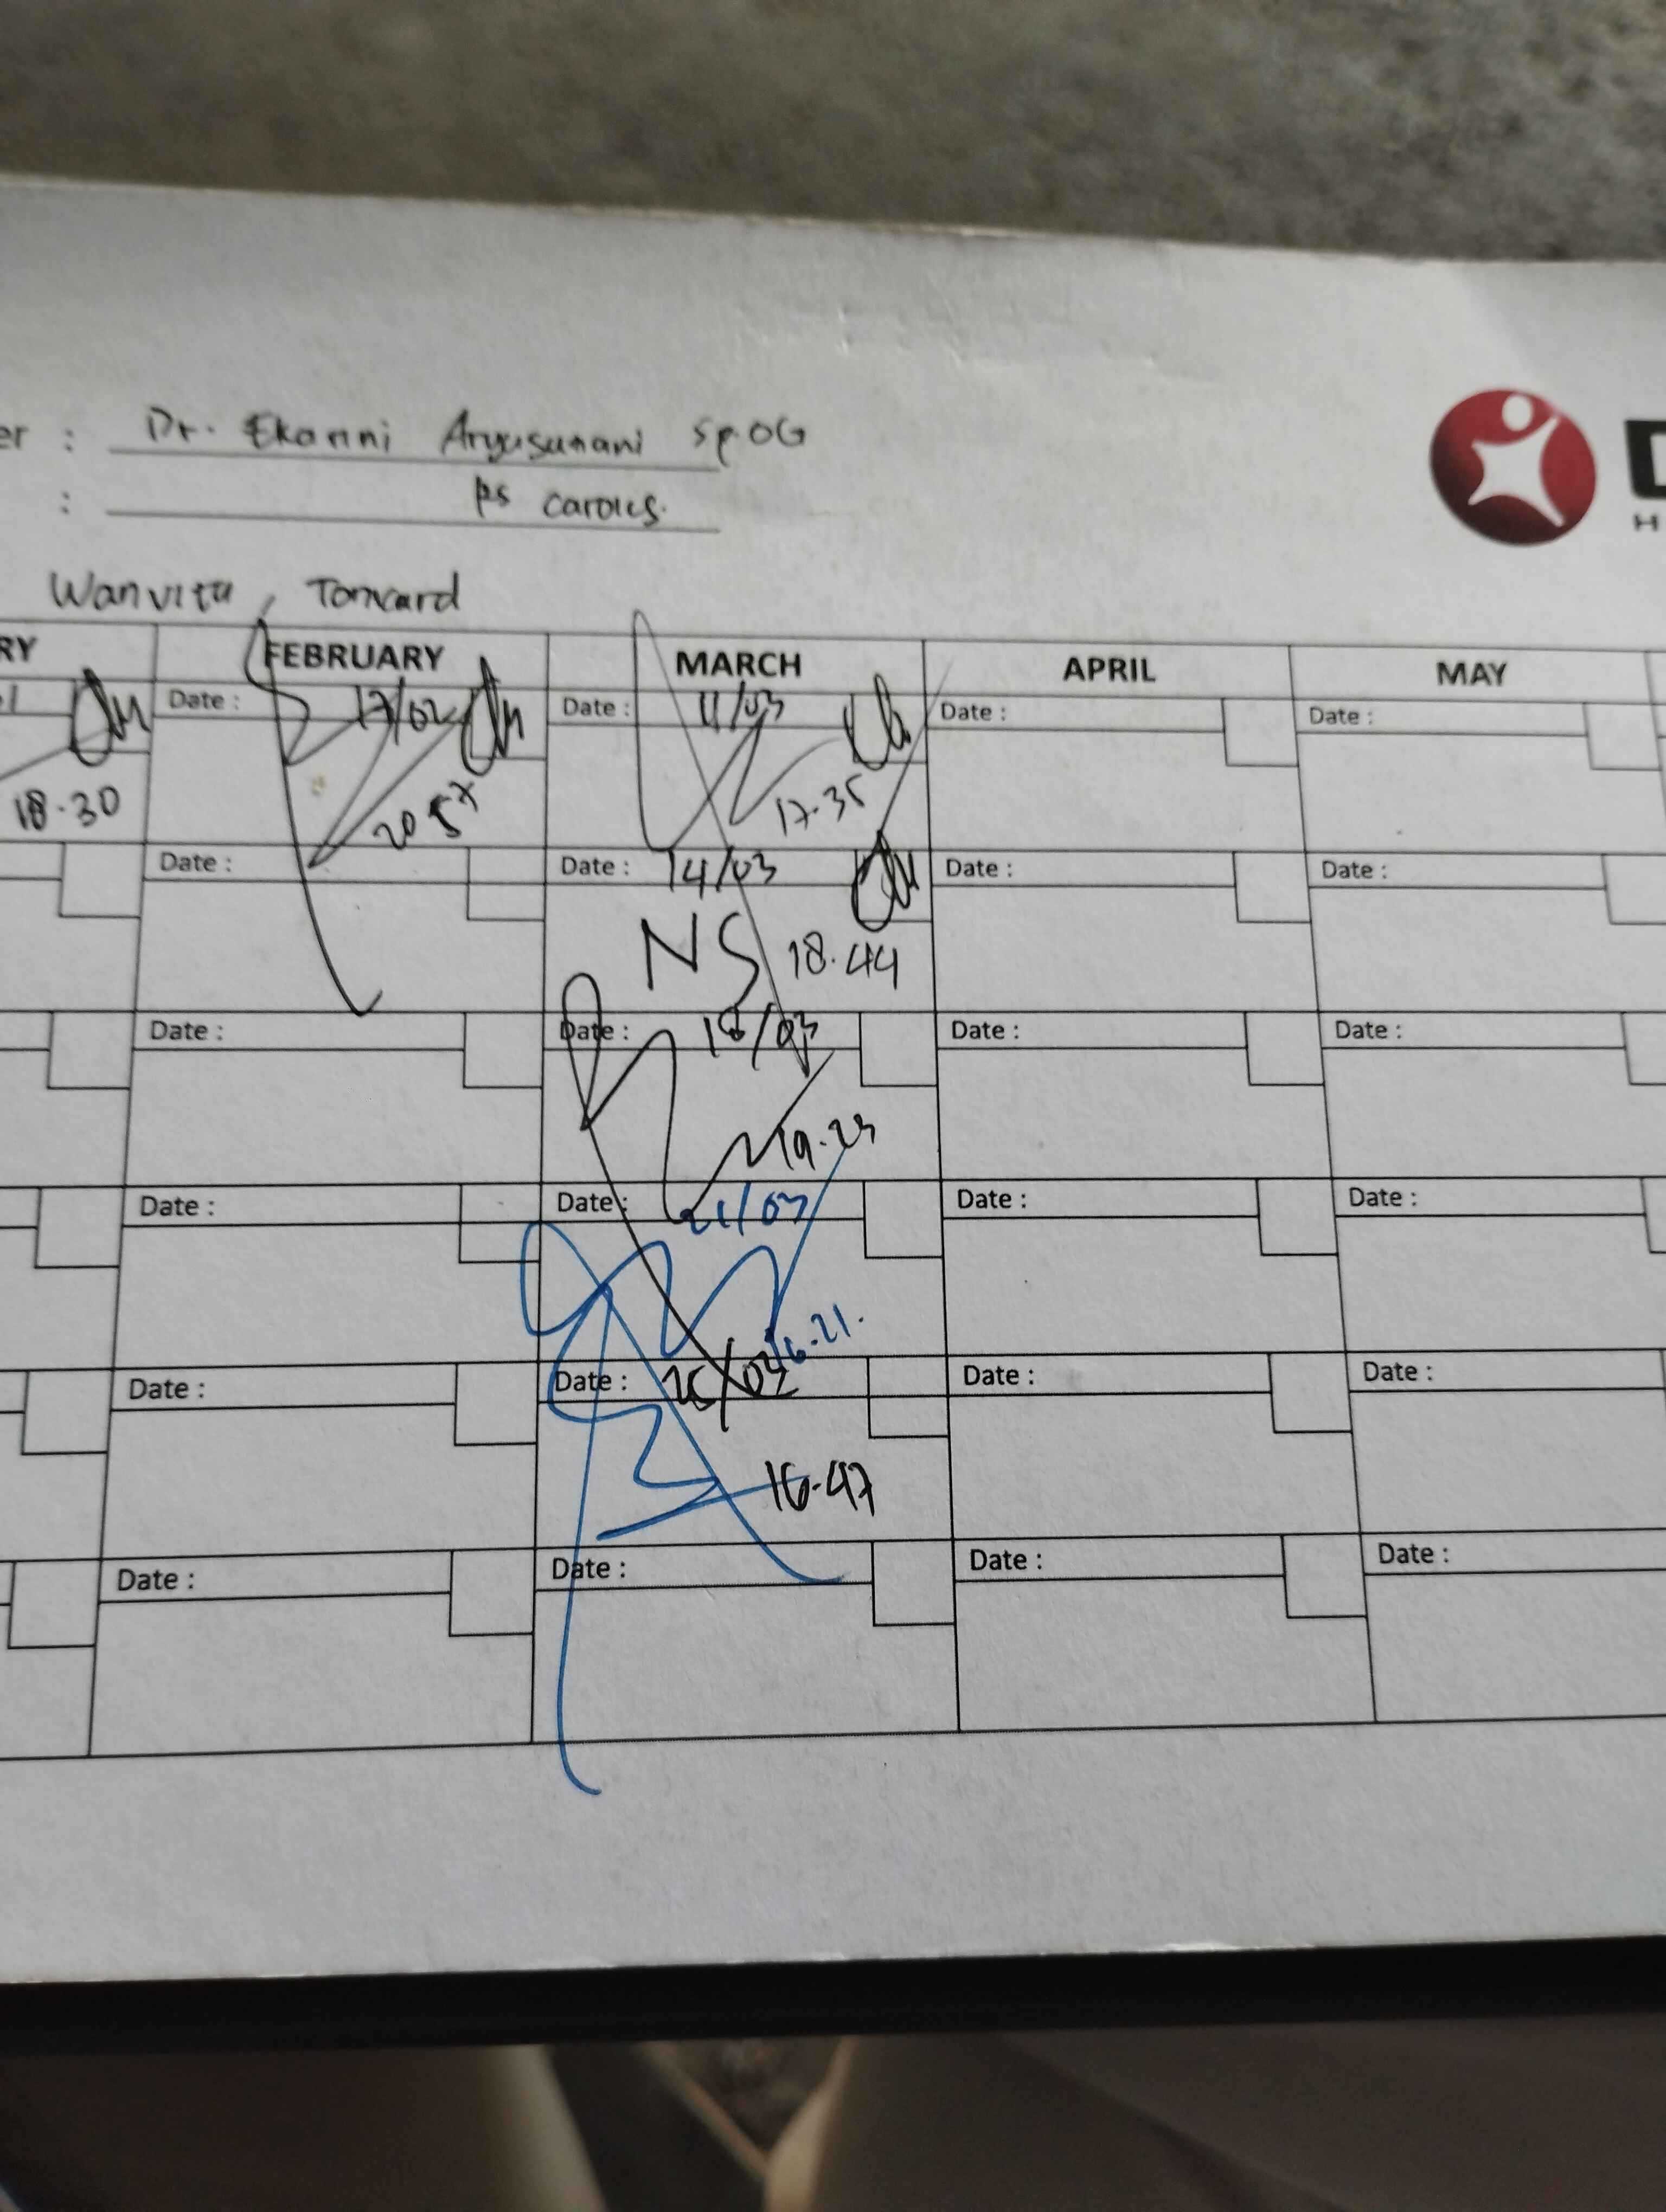 er : Dr. Ekanni Aryusunani SpOG
: RS
Wanvita, Tomcard
RY FEBRUARY MARCH APRIL MAY
Date : 17/02 Date : 11/03 Date : Date :
18.30 20.57 17.35
Date : Date : 14/03 Date : Date :
NS 18.44
Date : Date : 18/03 Date : Date :
19.23
Date : Date : 21/03 Date : Date :
16.21.
Date : Date : Date : Date :
16.47
Date : Date : Date : Date :